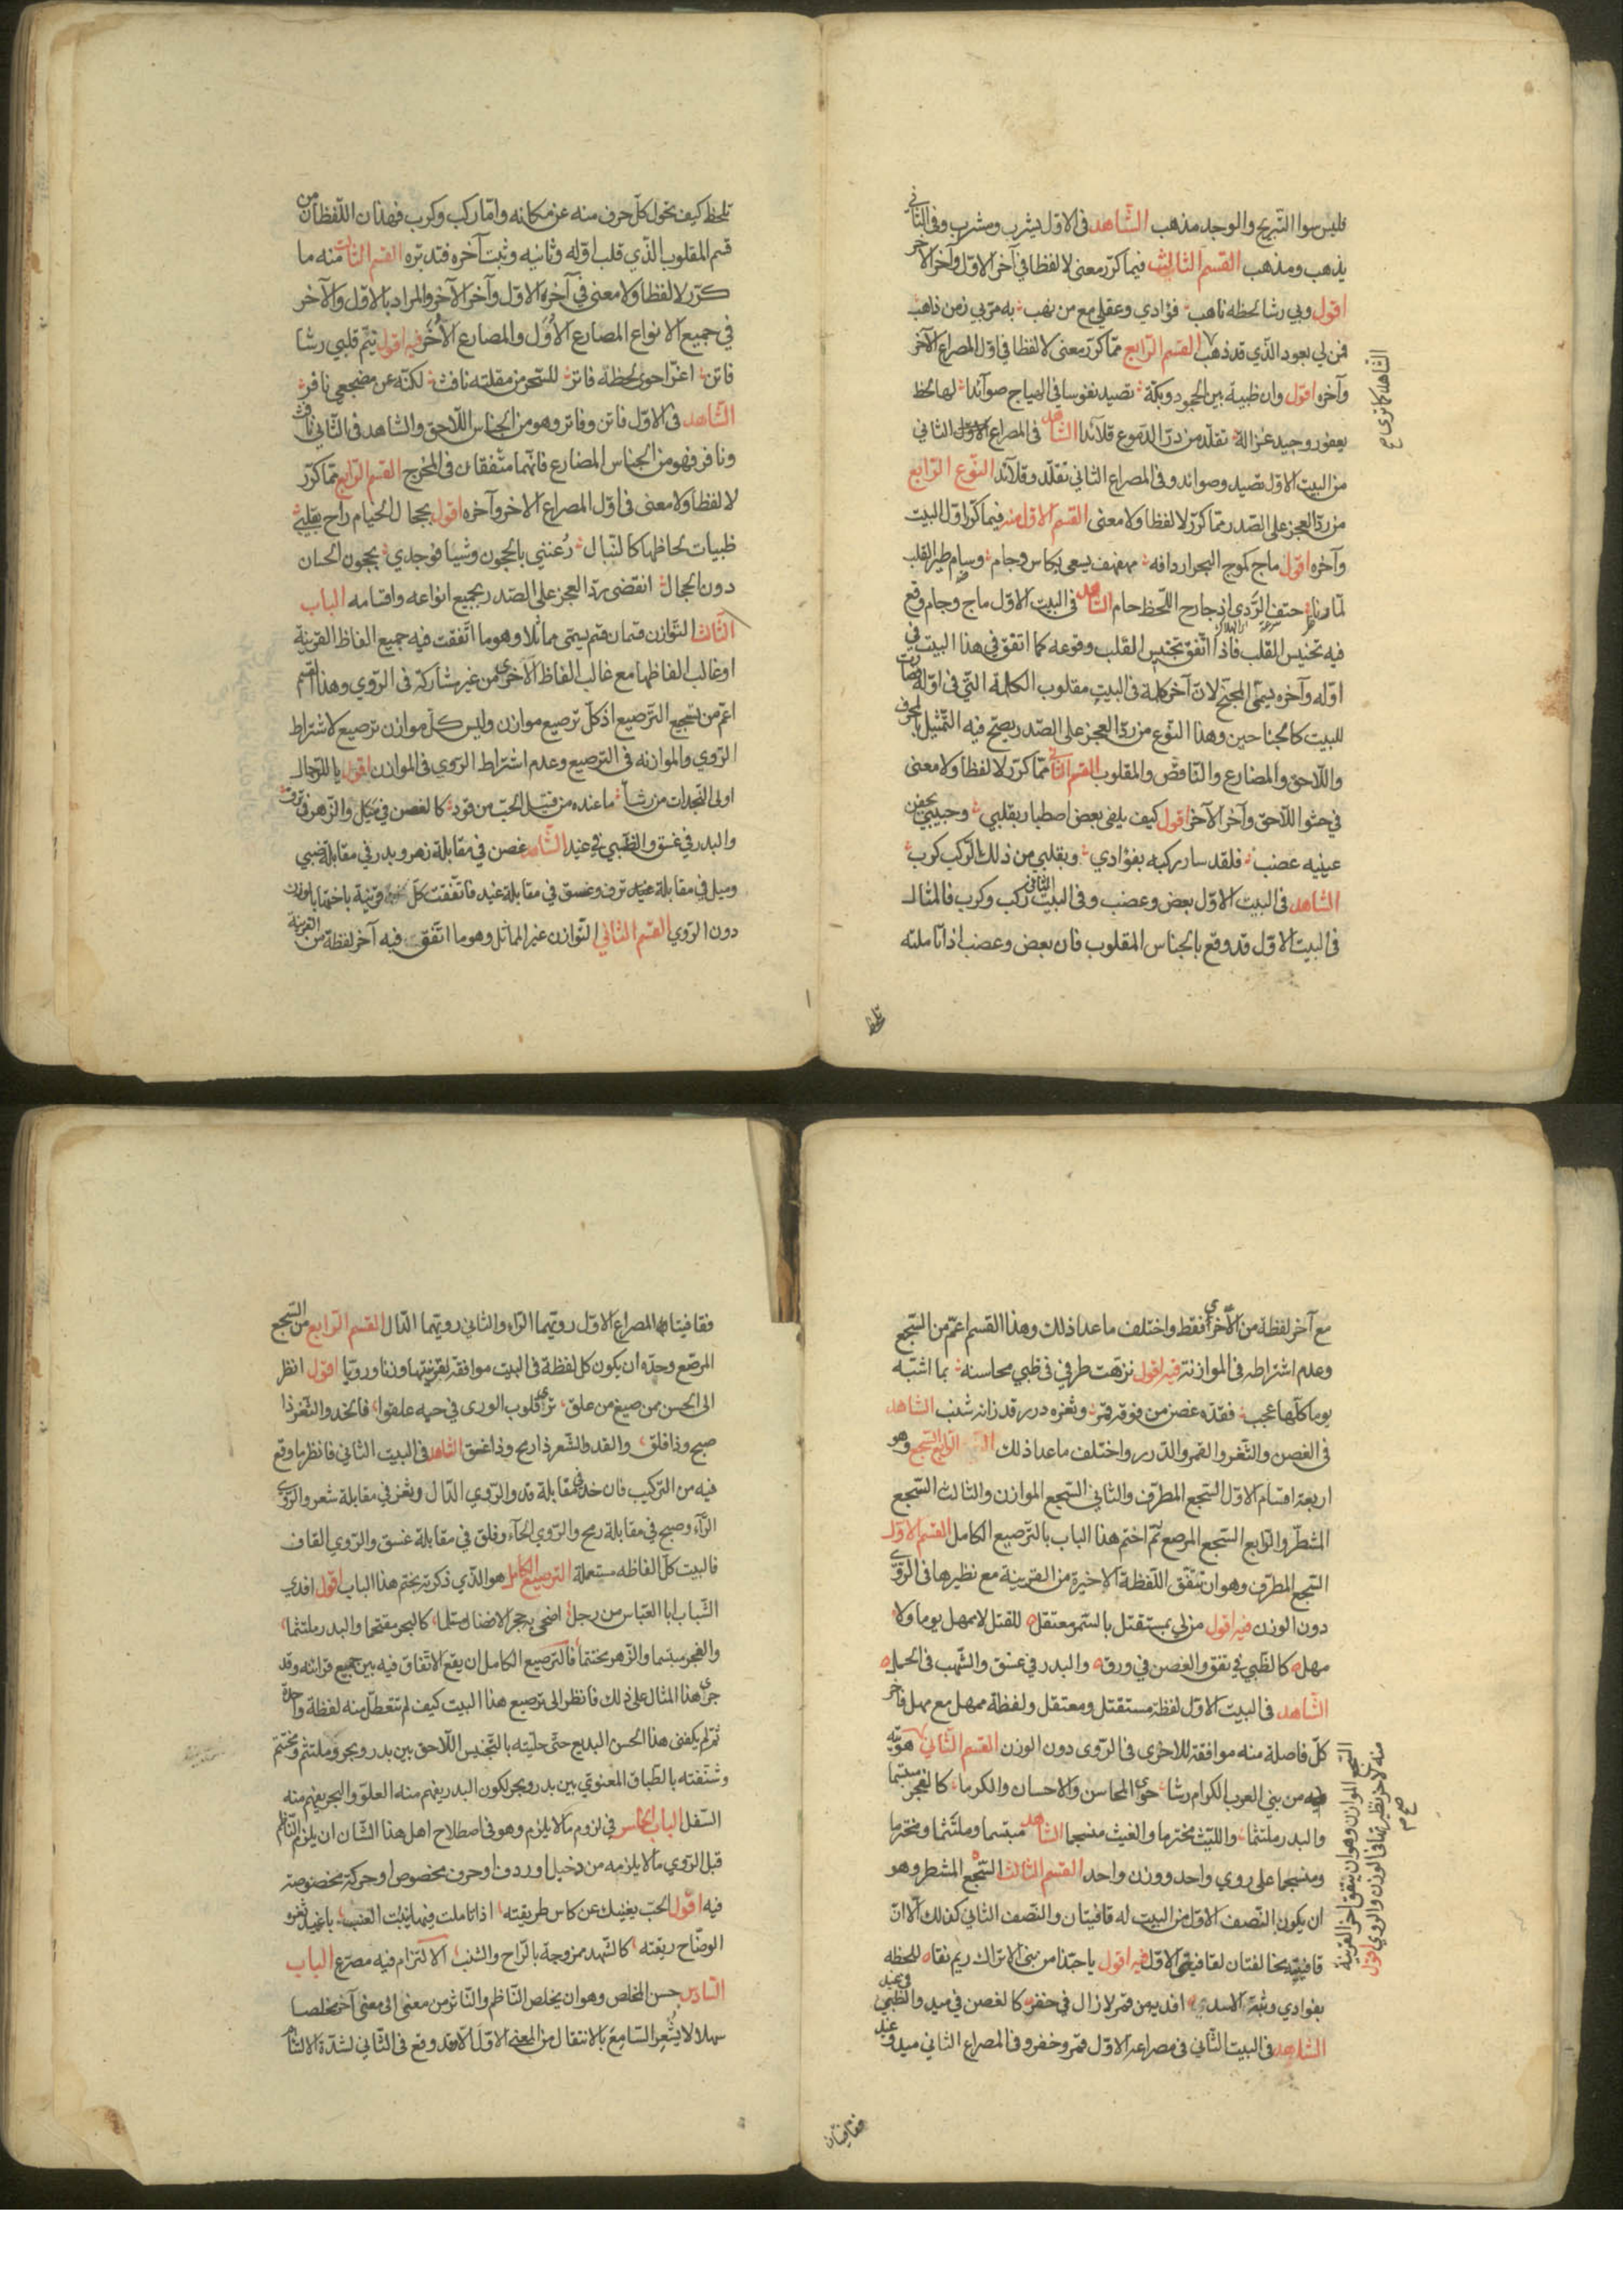 فليس سوا التبريح والوجد مذهب الشاهد في الاول يشرب ومشرب وفي الثاني
يذهب ومذهب القسم الثالث فيما كرر معنى لا لفظا في آخر الاول وآخر الآخر
اقول وبي رشا لحظه ناهب فؤادي وعقلي مع من نهب به مر بي زمن ذاهب
فمن لي بعود الذي قد ذهب القسم الرابع مما كرر معنى لا لفظا في اول المصراع الآخر
وآخره اقول وان ظبية بين الحجود وبكة تصيد نفوسا في الهياج صوآئدا لها لحظ
يعفور وجيد غزالة تقلد من در الدموع قلائدا الشاهد في المصراع الثاني
من البيت الاول تصيد وصوائد وفي المصراع الثاني تقلد وقلآئد النوع الرابع
من رد العجز على الصدر مما كرر لا لفظا ولا معنى القسم الاول منه فيما كرر اول البيت
وآخره اقول ماج كموج البحر اردافه مهفهف يسعى بكاس وجام وسام طير القلب
لما رنا حتف الردى اذ جارح اللحظ حام الشاهد في البيت الاول ماج وجام وقع
فيه تجنيس القلب فاذا اتفق تجنيس القلب وقوعه كما اتفق في هذا البيت في
اوله وآخره يسمى المجنح لان آخر كلمة في البيت مقلوب الكلمة التي في اوله فصارت
للبيت كالجناحين وهذا النوع من رد العجز على الصدر يصح فيه التمثيل بالمحرف
واللاحق والمضارع والناقص والمقلوب القسم الثاني مما كرر لا لفظا ولا معنى
في حشوا اللاحق وآخر الآخر اقول كيف يلفى بعض اصطبار بقلبي وحبيبي بجفن
عينيه عضب فلقد سار ركبه بفؤادي وبقلبي من ذلك الركب كرب
الشاهد في البيت الاول بعض وعضب وفي البيت الثاني ركب وكرب فالمثال
في البيت الاول قد وقع بالجناس المقلوب فان بعض وعضب اذا تاملته
تلحظ
الشاهد كما ترى صح
تلحظ كيف تحول كل حرف منه عن مكانه واما ركب وكرب فهذان اللفظان من
قسم المقلوب الذي قلب اوله وثانيه وثبت آخره فتدبره القسم الثالث منه ما
كرر لا لفظا ولا معنى في آخره الاول وآخر الآخر والمراد بالاول والآخر
في جميع الانواع المصارع الاول والمصارع الاخر فيه اقول تيم قلبي رشا
فاتن اغن احوى لحظة فاتر للسحر من مقلته نافث لكنه عن مضجعي نافر
الشاهد في الاول فاتن وفاتر وهو من الجناس اللاحق والشاهد في الثاني نافث
ونافر فهو من الجناس المضارع فانهما متفقان في المخرج القسم الرابع مما كرر
لا لفظا ولا معنى في اول المصراع الآخر وآخره اقول بحجال الخيام راح بقلبي
ظبيات لحاظها كالنبال رعنني بالجون وشيا فوجدي بجحون الحسان
دون الحجال انقضى رد العجز على الصدر بجميع انواعه واقسامه الباب
الثالث التوازن قسمان قسم يسمى مماثلا وهو ما اتفقت فيه جميع الفاظ القرينة
او غالب الفاظها مع غالب الفاظ الاخرى من غير مشاركة في الروي وهذا القسم
اعم من تسجيع الترصيع اذ كل ترصيع موازن وليس كل موازن ترصيع لاشتراط
الروي والموازنة في الترصيع وعدم اشتراط الروي في الموازن اقول يا للرجال
اولى النجدات من رشأ ما عنده من قتيل الحب من قود كالغصن في ميل والزهر في ترف
والبدر في غسق والظبي في غيد الشاهد غصن في مقابلة زهر وبدر في مقابلة ضبي
وميل في مقابلة ترف وغسق في مقابلة غيد فاتفقت كل قرينة باختها بالوزن
دون الروي القسم الثاني التوازن غير المماثل وهو ما اتفق فيه آخر لفظة من القرينة
مع آخر لفظة من الاخرى فقط واختلف ما عدا ذلك وهذا القسم اعم من السجع
وعدم اشتراطه في الموازنة فيه اقول نزهت طرفي في ظبي محاسنه بما اشتبه
يوما كلها عجب فقده غصن من فوقه قمر وثغره درر قد زانه شنب الشاهد
في الغصن والثغر والقمر والدرر واختلف ما عدا ذلك الباب الرابع السجع وهو
اربعة اقسام الاول السجع المطرف والثاني السجع الموازن والثالث السجع
المشطر والرابع السجع المرصع ثم اختم هذا الباب بالترصيع الكامل القسم الاول
السجع المطرف وهو ان تتفق اللفظة الاخيرة من القرينة مع نظيرها في الروي
دون الوزن فيه اقول من لي بمستقتل بالسمر معتقل للقتل لا ممهل يوما ولا
مهل كالظبي في نفق والغصن في ورق والبدر في غسق والشهب في الحمل
الشاهد في البيت الاول لفظة مستقتل ومعتقل ولفظة ممهل مع مهل فآخر
كل فاصلة منه موافقة للاخرى في الروي دون الوزن القسم الثاني هويته
من بني العرب الكرام رشا حوى المحاسن والاحسان والكرما كالفجر مبتسما
والبدر ملتثما والليث مخترما والغيث منسجما الشاهد مبتسما وملتثما ومخترما
ومنسجما على روي واحد ووزن واحد القسم الثالث السجع المشطر وهو
ان يكون النصف الاول من البيت له قافيتان والنصف الثاني كذلك الا ان
قافيتيه يخالفتان لقافيتي الاول فيه اقول يا حبذا من بني الاتراك ريم نقا للحظه
بفؤادي وثبة الاسد افديه من قمر لا زال في خفر كالغصن في ميد والظبي في غيد
الشاهد في البيت الثاني في مصراعه الاول قمر وخفر وفي المصراع الثاني ميد وغيد
فقافيتان
السجع الموازن وهو ان يتفق آخر القرينة
منه لآخر نظيرتها في الوزن والروي اقول
صح
فقافيتا المصراع الاول رويهما الراء والثاني رويهما الدال القسم الرابع من السجع
المرصع وحده ان يكون كل لفظة في البيت موافقة لقرينتها وزنا ورويا اقول انظر
الى الحسن ممن صيغ من علق ترى قلوب الورى في حبه علقوا فالخد والثغر ذا
صبح وذا فلق والقد والشعر ذا رمح وذا غسق الشاهد في البيت الثاني فانظر ما وقع
فيه من التركيب فان خد في مقابلة قد والروي الدال وثغر في مقابلة شعر والروي
الراء وصبح في مقابلة رمح والروي الحاء وفلق في مقابلة غسق والروي القاف
فالبيت كل الفاظه مستعملة الترصيع الكامل هو الذي ذكرته بختم هذا الباب اقول افدي
الشباب ابا العباس من رجل اضحى بحجر الافضال مستلما كالبحر مقتحما والبدر ملتثما
والفجر مبتسما والزهر مختتما فالترصيع الكامل ان يقع الاتفاق فيه بين جميع قرائنه وقد
جرى هذا المثال على ذلك فانظر الى ترصيع هذا البيت كيف لم تتعطل منه لفظة واحدة
ثم لم يكفني هذا الحسن البديع حتى حليته بالتجنيس اللاحق بين بدر وبحر وملتثم ومختتم
وشنفته بالطباق المعنوي بين بدر وبحر لكون البدر يفهم منه العلو والبحر يفهم منه
السفل الباب الخامس في لزوم ما لا يلزم وهو في اصطلاح اهل هذا الشان ان يلزم الناظم
قبل الروي ما لا يلزمه من دخيل او ردف او حرف مخصوص او حركة مخصوصة
فيه اقول الحب يغنيك عن كاس طريقته اذا تاملت فيما ينبت العنب باغيد ثغره
الوضاح ريقته كالشهد ممزوجة بالراح والشنب الالتزام فيه مصرع الباب
السادس حسن المخلص وهو ان يخلص الناظم والناثر من معنى الى معنى آخر مخلصا
سهلا لا يشعر السامع بالانتقال من المعنى الاول الا وقد وقع في الثاني لشدة الالتئام